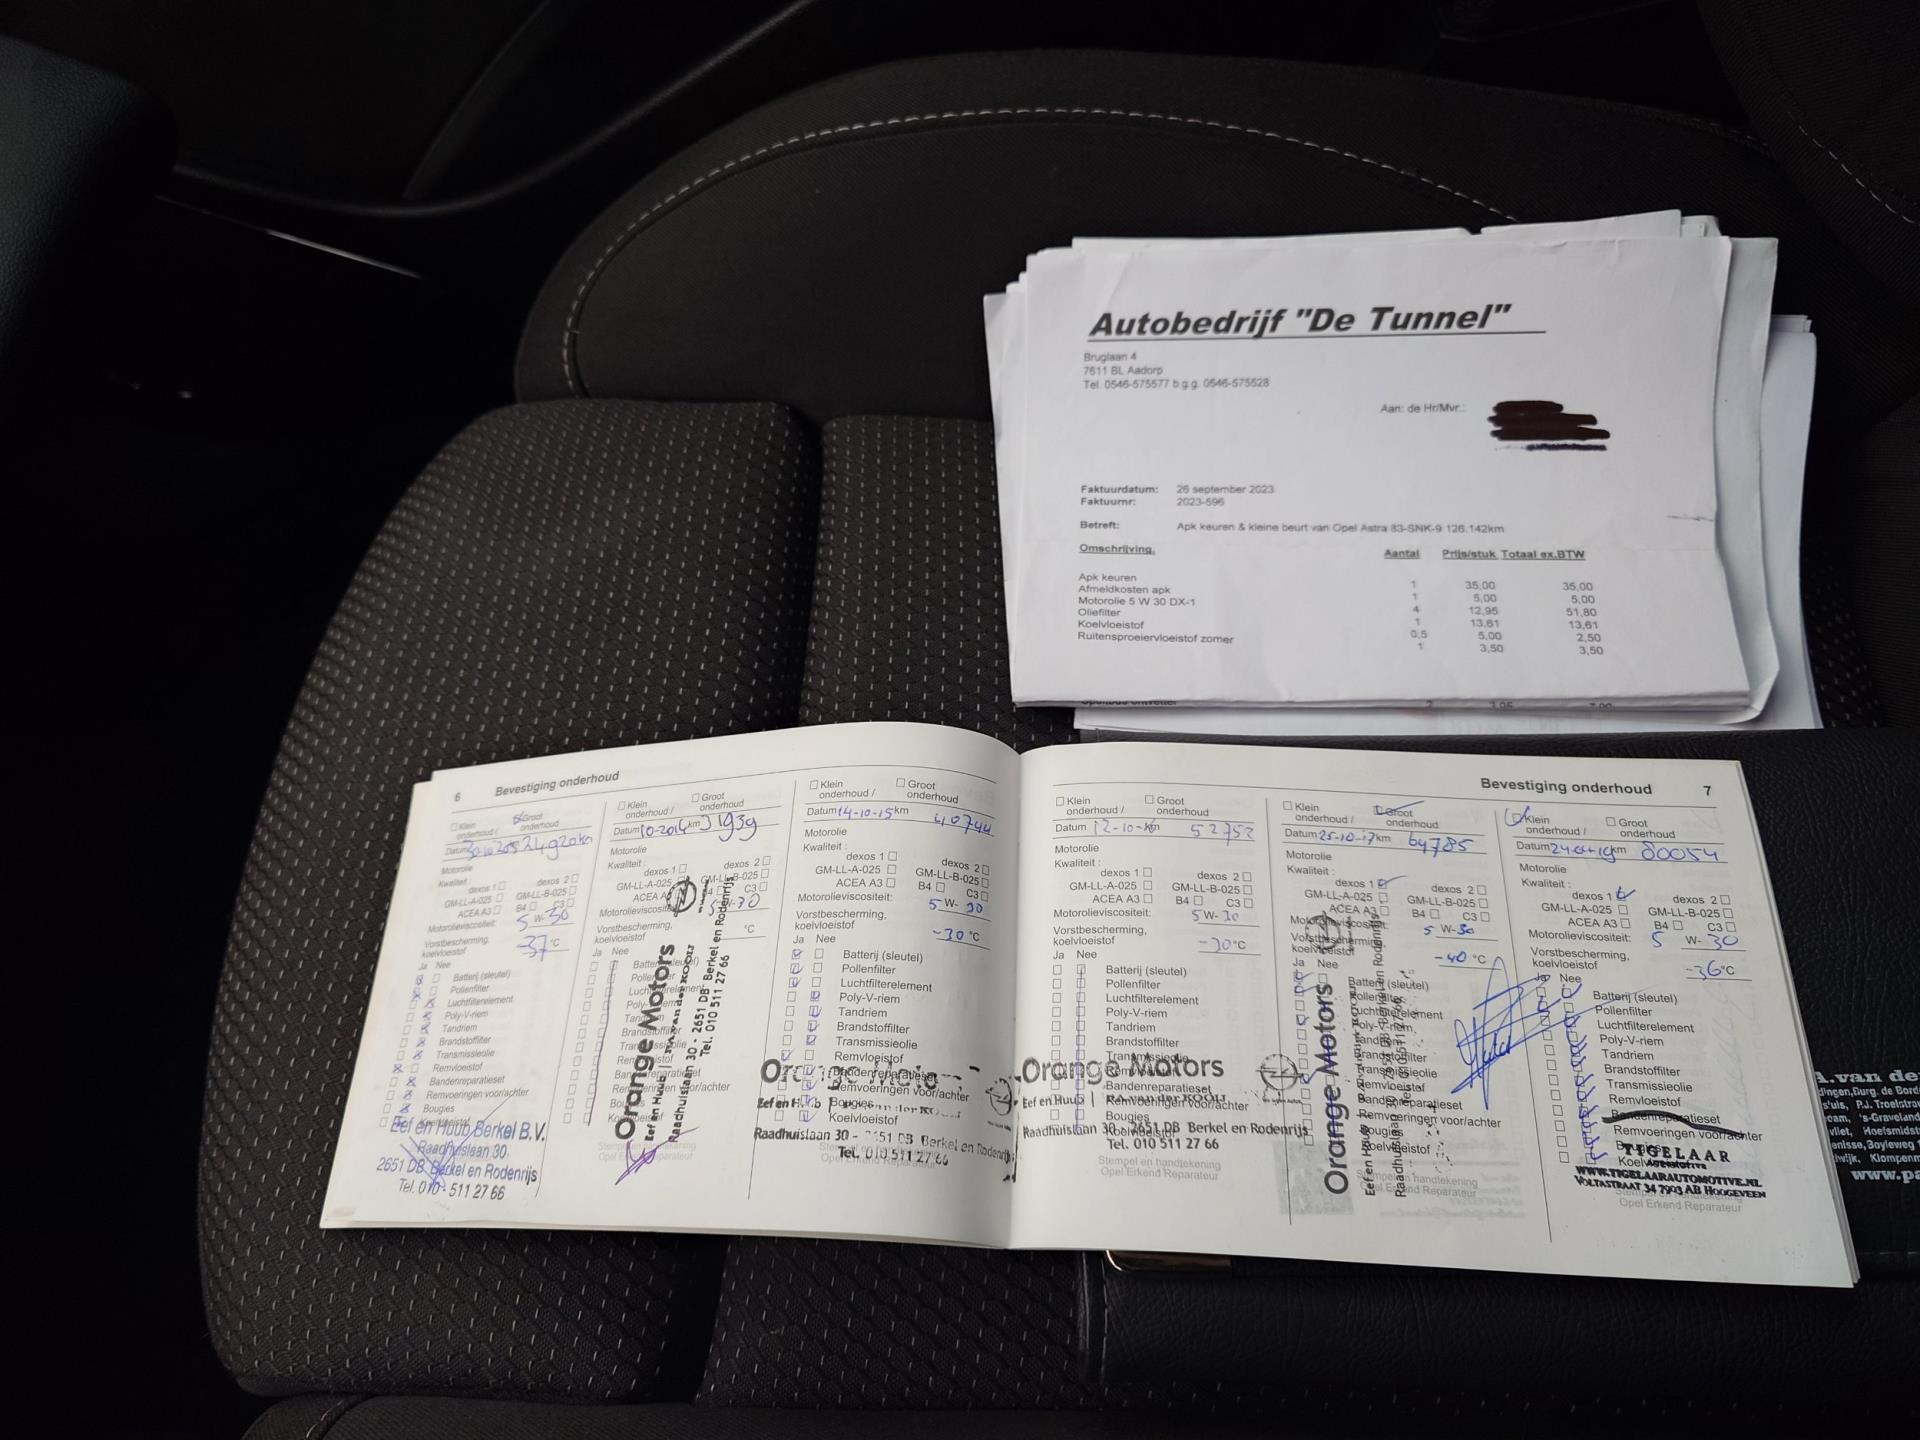 Autobedrijf "De Tunnel"
Bruglaan 4
7611 BL Aadorp
Tel. 0546-575577 b.g.g. 0546-575528
Aan: de Hr/Mvr.:
Faktuurdatum: 26 september 2023
Faktuurnr: 2023-596
Betreft: Apk keuren & kleine beurt van Opel Astra 83-SNK-9 126.142km
Omschrijving. Aantal Prijs/stuk Totaal ex.BTW
Apk keuren 1 35,00 35,00
Afmeldkosten apk 1 5,00 5,00
Motorolie 5 W 30 DX-1 4 12,95 51,80
Oliefilter 1 13,61 13,61
Koelvloeistof 0,5 5,00 2,50
Ruitensproeiervloeistof zomer 1 3,50 3,50
6 Bevestiging onderhoud
Klein onderhoud / Groot onderhoud
Datum km
Motorolie
Kwaliteit :
dexos 1 dexos 2
GM-LL-A-025 GM-LL-B-025
ACEA A3 B4 C3
Motorolieviscositeit: 5 W-30
Vorstbescherming,
koelvloeistof -37 °C
Ja Nee
Batterij (sleutel)
Pollenfilter
Luchtfilterelement
Poly-V-riem
Tandriem
Brandstoffilter
Transmissieolie
Remvloeistof
Bandenreparatieset
Remvoeringen voor/achter
Bougies
Eef en Huub Berkel B.V.
Raadhuislaan 30,
2651 DB Berkel en Rodenrijs
Tel. 010 - 511 27 66
Klein onderhoud / Groot onderhoud
Datum 10-2014 km 31939
Motorolie
Kwaliteit :
dexos 1 dexos 2
GM-LL-A-025 GM-LL-B-025
ACEA A3 C3
Motorolieviscositeit: 5 W-30
Vorstbescherming,
koelvloeistof °C
Ja Nee
Orange Motors
Eef en Huub | P.A. van der KOOIJ
Raadhuislaan 30 - 2651 DB Berkel en Rodenrijs
Tel. 010 511 27 66
Klein onderhoud / Groot onderhoud
Datum 14-10-15 km 40744
Motorolie
Kwaliteit :
dexos 1 dexos 2
GM-LL-A-025 GM-LL-B-025
ACEA A3 B4 C3
Motorolieviscositeit: 5 W-30
Vorstbescherming,
koelvloeistof -30 °C
Ja Nee
Batterij (sleutel)
Pollenfilter
Luchtfilterelement
Poly-V-riem
Tandriem
Brandstoffilter
Transmissieolie
Remvloeistof
Bandenreparatieset
Remvoeringen voor/achter
Bougies
Koelvloeistof
Raadhuislaan 30 - 2651 DB Berkel en Rodenrijs
Tel. 010 511 27 66
Stempel en handtekening
Opel Erkend Reparateur
Bevestiging onderhoud 7
Klein onderhoud / Groot onderhoud
Datum 12-10- km 52752
Motorolie
Kwaliteit :
dexos 1 dexos 2
GM-LL-A-025 GM-LL-B-025
ACEA A3 B4 C3
Motorolieviscositeit: 5 W-30
Vorstbescherming,
koelvloeistof -30 °C
Ja Nee
Batterij (sleutel)
Pollenfilter
Luchtfilterelement
Poly-V-riem
Tandriem
Brandstoffilter
Transmissieolie
Remvloeistof
Bandenreparatieset
Remvoeringen voor/achter
Bougies
Koelvloeistof
Orange Motors
Eef en Huub | P.A. van der KOOIJ
Raadhuislaan 30 - 2651 DB Berkel en Rodenrijs
Tel. 010 511 27 66
Stempel en handtekening
Opel Erkend Reparateur
Klein onderhoud / Groot onderhoud
Datum 25-10-17 km 64785
Motorolie
Kwaliteit :
dexos 1 dexos 2
GM-LL-A-025 GM-LL-B-025
ACEA A3 B4 C3
Motorolieviscositeit: 5 W-30
Vorstbescherming,
koelvloeistof -40 °C
Ja Nee
Batterij (sleutel)
Pollenfilter
Luchtfilterelement
Poly-V-riem
Tandriem
Brandstoffilter
Transmissieolie
Remvloeistof
Bandenreparatieset
Remvoeringen voor/achter
Bougies
Koelvloeistof
Orange Motors
Eef en Huub
Stempel en handtekening
Opel Erkend Reparateur
Klein onderhoud / Groot onderhoud
Datum km 80054
Motorolie
Kwaliteit :
dexos 1 dexos 2
GM-LL-A-025 GM-LL-B-025
ACEA A3 B4 C3
Motorolieviscositeit: 5 W-30
Vorstbescherming,
koelvloeistof -36 °C
Ja Nee
Batterij (sleutel)
Pollenfilter
Luchtfilterelement
Poly-V-riem
Tandriem
Brandstoffilter
Transmissieolie
Remvloeistof
Bandenreparatieset
Remvoeringen voor/achter
TIGELAAR
AUTOMOTIVE
WWW.TIGELAARAUTOMOTIVE.NL
VOLTASTRAAT 34 7903 AB HOOGEVEEN
Opel Erkend Reparateur
A. van de
www.pa